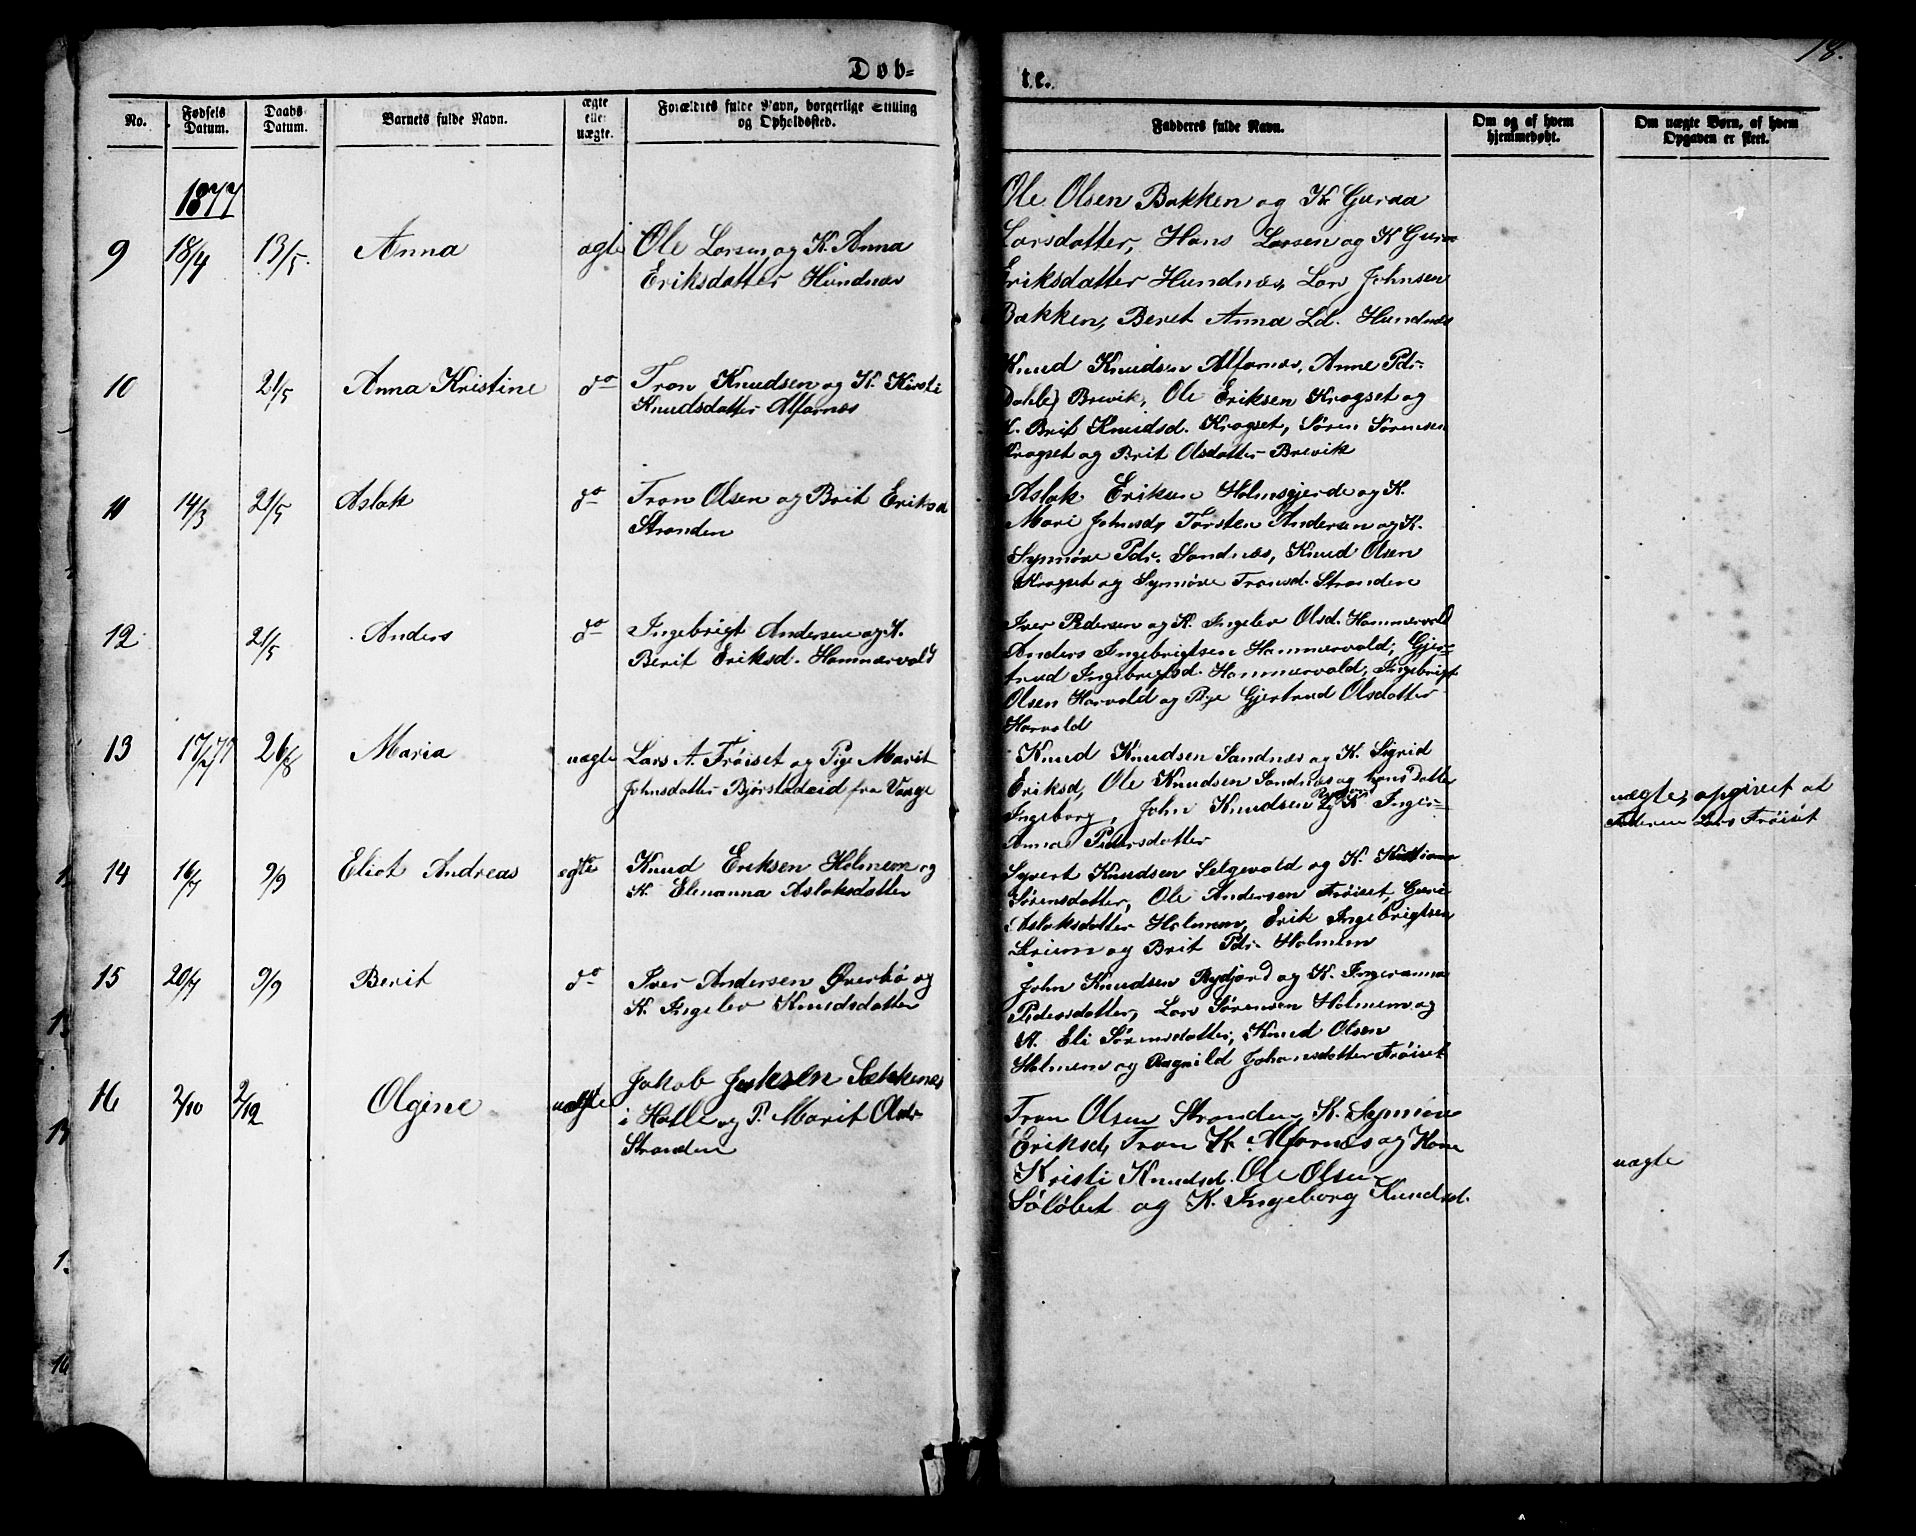 18.
Døb=
te.
No.
Fødsels Datum.
Daabs Datum.
Barnets fulde Navn.
ægte eller uægte.
Forældres fulde Navn, borgerlige Stilling og Opholdssted.
Fadderes fulde Navn.
Om og af hvem hjemmedøbt.
Om uægte Børn, af hvem Opgaven er skeet.
1877
9 18/4 13/5. Anna ægte
Ole Larsen og K. Anna
Eriksdatter Hundnæs
Ole Olsen Bakken og K. Guraa
Larsdatter, Hans Larsen og K
Eriksdatter Hundnæs, Lars Johnsen
Bakken, Beret Anna Ld. Hundnæs
10 21/5 Anna Kristine do
Tron Knudsen og K. Kirsti
Knudsdatter Alfarnæs
Knud Knudsen Alfarnæs, Anne Pdr.
Dahle, Brevik, Ole Eriksen Kragset og
K. Brit Knudsd. Kragset, Søren Sørensen
Kragset og Brit Olsdatter Brevik
11 14/3 21/5 Aslak do
Tron Olsen og Brit Eriksd
Stranden
Aslak Eriksen Holmsgjerde og K.
Mari Johnsd, Torsten Andersen og K.
Synnøve Pdr. Sandnæs, Knud Olsen
Kragset og Synnøve Tronsd. Stranden
12 21/5 Anders do
Ingebrigt Andersen og K.
Berit Eriksd. Hammervold
Iver Pedersen og K. Ingelev Olsd. Hammervold
Anders Ingebrigtsen Hammervold, Gjer=
trud Ingebrigtsd. Hammervold, Ingebrigt
Olsen Harvold og Pige Gjertrud Olsdatter
Harvold
13 26/8 Maria uægte
Lars A. Frøiset og Pige Marit
Johnsdatter Bjørstadeid fra Vaage
Knud Knudsen Sandnæs og K. Sigrid
Eriksd, Ole Knudsen Sandnæs og hans Datter
Ingeborg, John Knudsen Rydjord og K Inger=
Anna Pedersdatter
uægte, opgivet at
Faderen Lars Frøiset
14 16/7 9/9 Eliot Andreas ægte
Knud Eriksen Holmem og
K. Elenanna Aslaksdatter
Syvert Knudsen Selgevold og K.
Sørensdatter, Ole Andersen Frøiset, Guri
Aslaksdatter Holmem, Erik Ingebrigtsen
og Brit Pdr. Holmem
15 20/7 9/9 Berit do
Iver Andersen Øverbø og
K. Ingelev Knudsdatter
John Knudsen Rydjord og K. Ingeranna
Pedersdatter, Lars Sørensen Holmem og
K. Eli Sørensdatter, Knud Olsen
Holmem og Ragnild Johansdatter Frøiset
16 2/10 2/12 Olgine uægte
Jakob Sækkenæs
i Hatle og P. Marit Olsdr
Stranden
Tron Olsen Stranden, K. Synnøve
Eriksd, Tron K. Alfarnæs og Kone
Kristi Knudsd. Ole Olsen
og K. Ingeborg Knudsd.
uægte